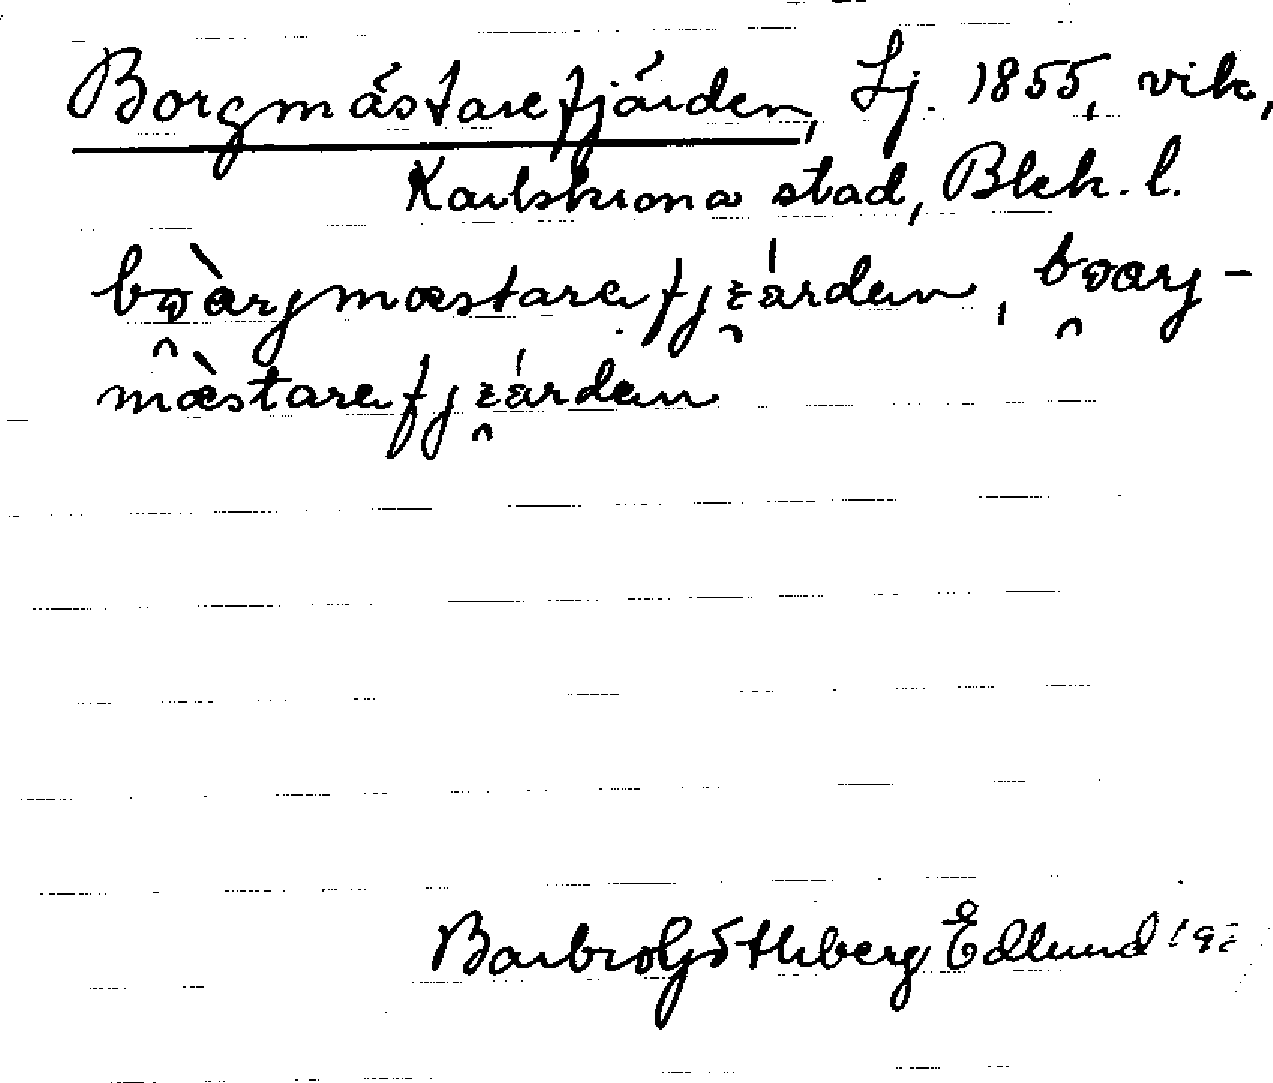 Borgmästarefjärden, Sj. 1855, vik,
Karlskrona stad, Blek. l.
bo̯àrjmæstarafjɛ̯árdan, bo̯arj-
mæ̀starafjɛ̯árdan
Barbro Göthberg Edlund